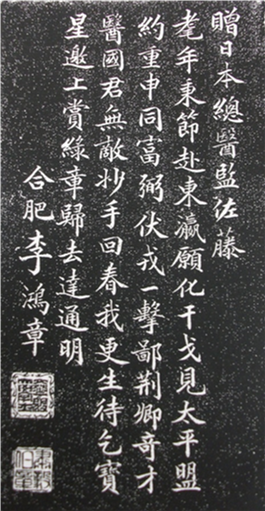 贈日本總醫監佐藤
耄年秉節赴東瀛願化干戈見太平盟
約重申同富弼伏戎一擊鄙荊卿奇才
醫國君無敵玅手回春我更生待乞寶
星邀上賞綠章歸去達通明
合肥李鴻章